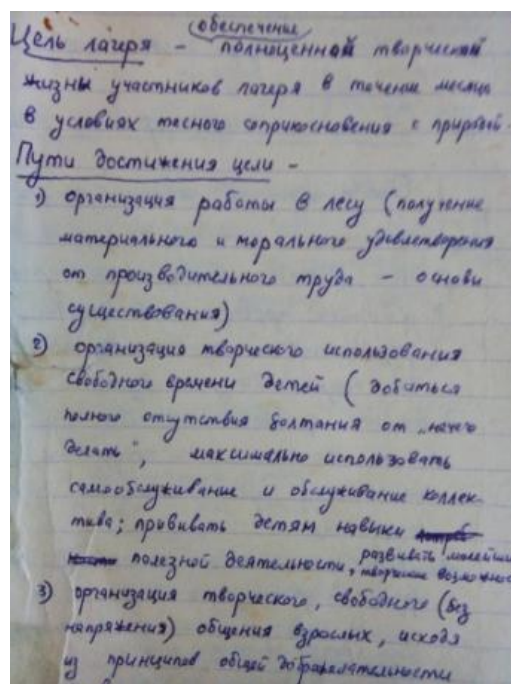 обеспечение
Цель лагеря - полноценной творческой
жизни участников лагеря в течение месяца
в условиях тесного соприкосновения с природой.
Пути достижения цели -
1) организация работы в лесу (получение
материального и морального удовлетворения
от производительного труда - основы
существования)
2) организация творческого использования
свободного времени детей (добиться
полного отсутствия болтания от "нечего
делать", максимально использовать
самообслуживание и обслуживание коллек-
тива; прививать детям навыки
полезной деятельности, развивать
творческие возможнос
3) организация творческого, свободного (без
напряжения) общения взрослых, исходя
из принципов общей доброжелательности